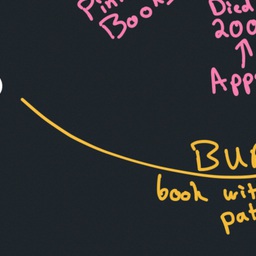 Books
Died
200
App
book wit
pat